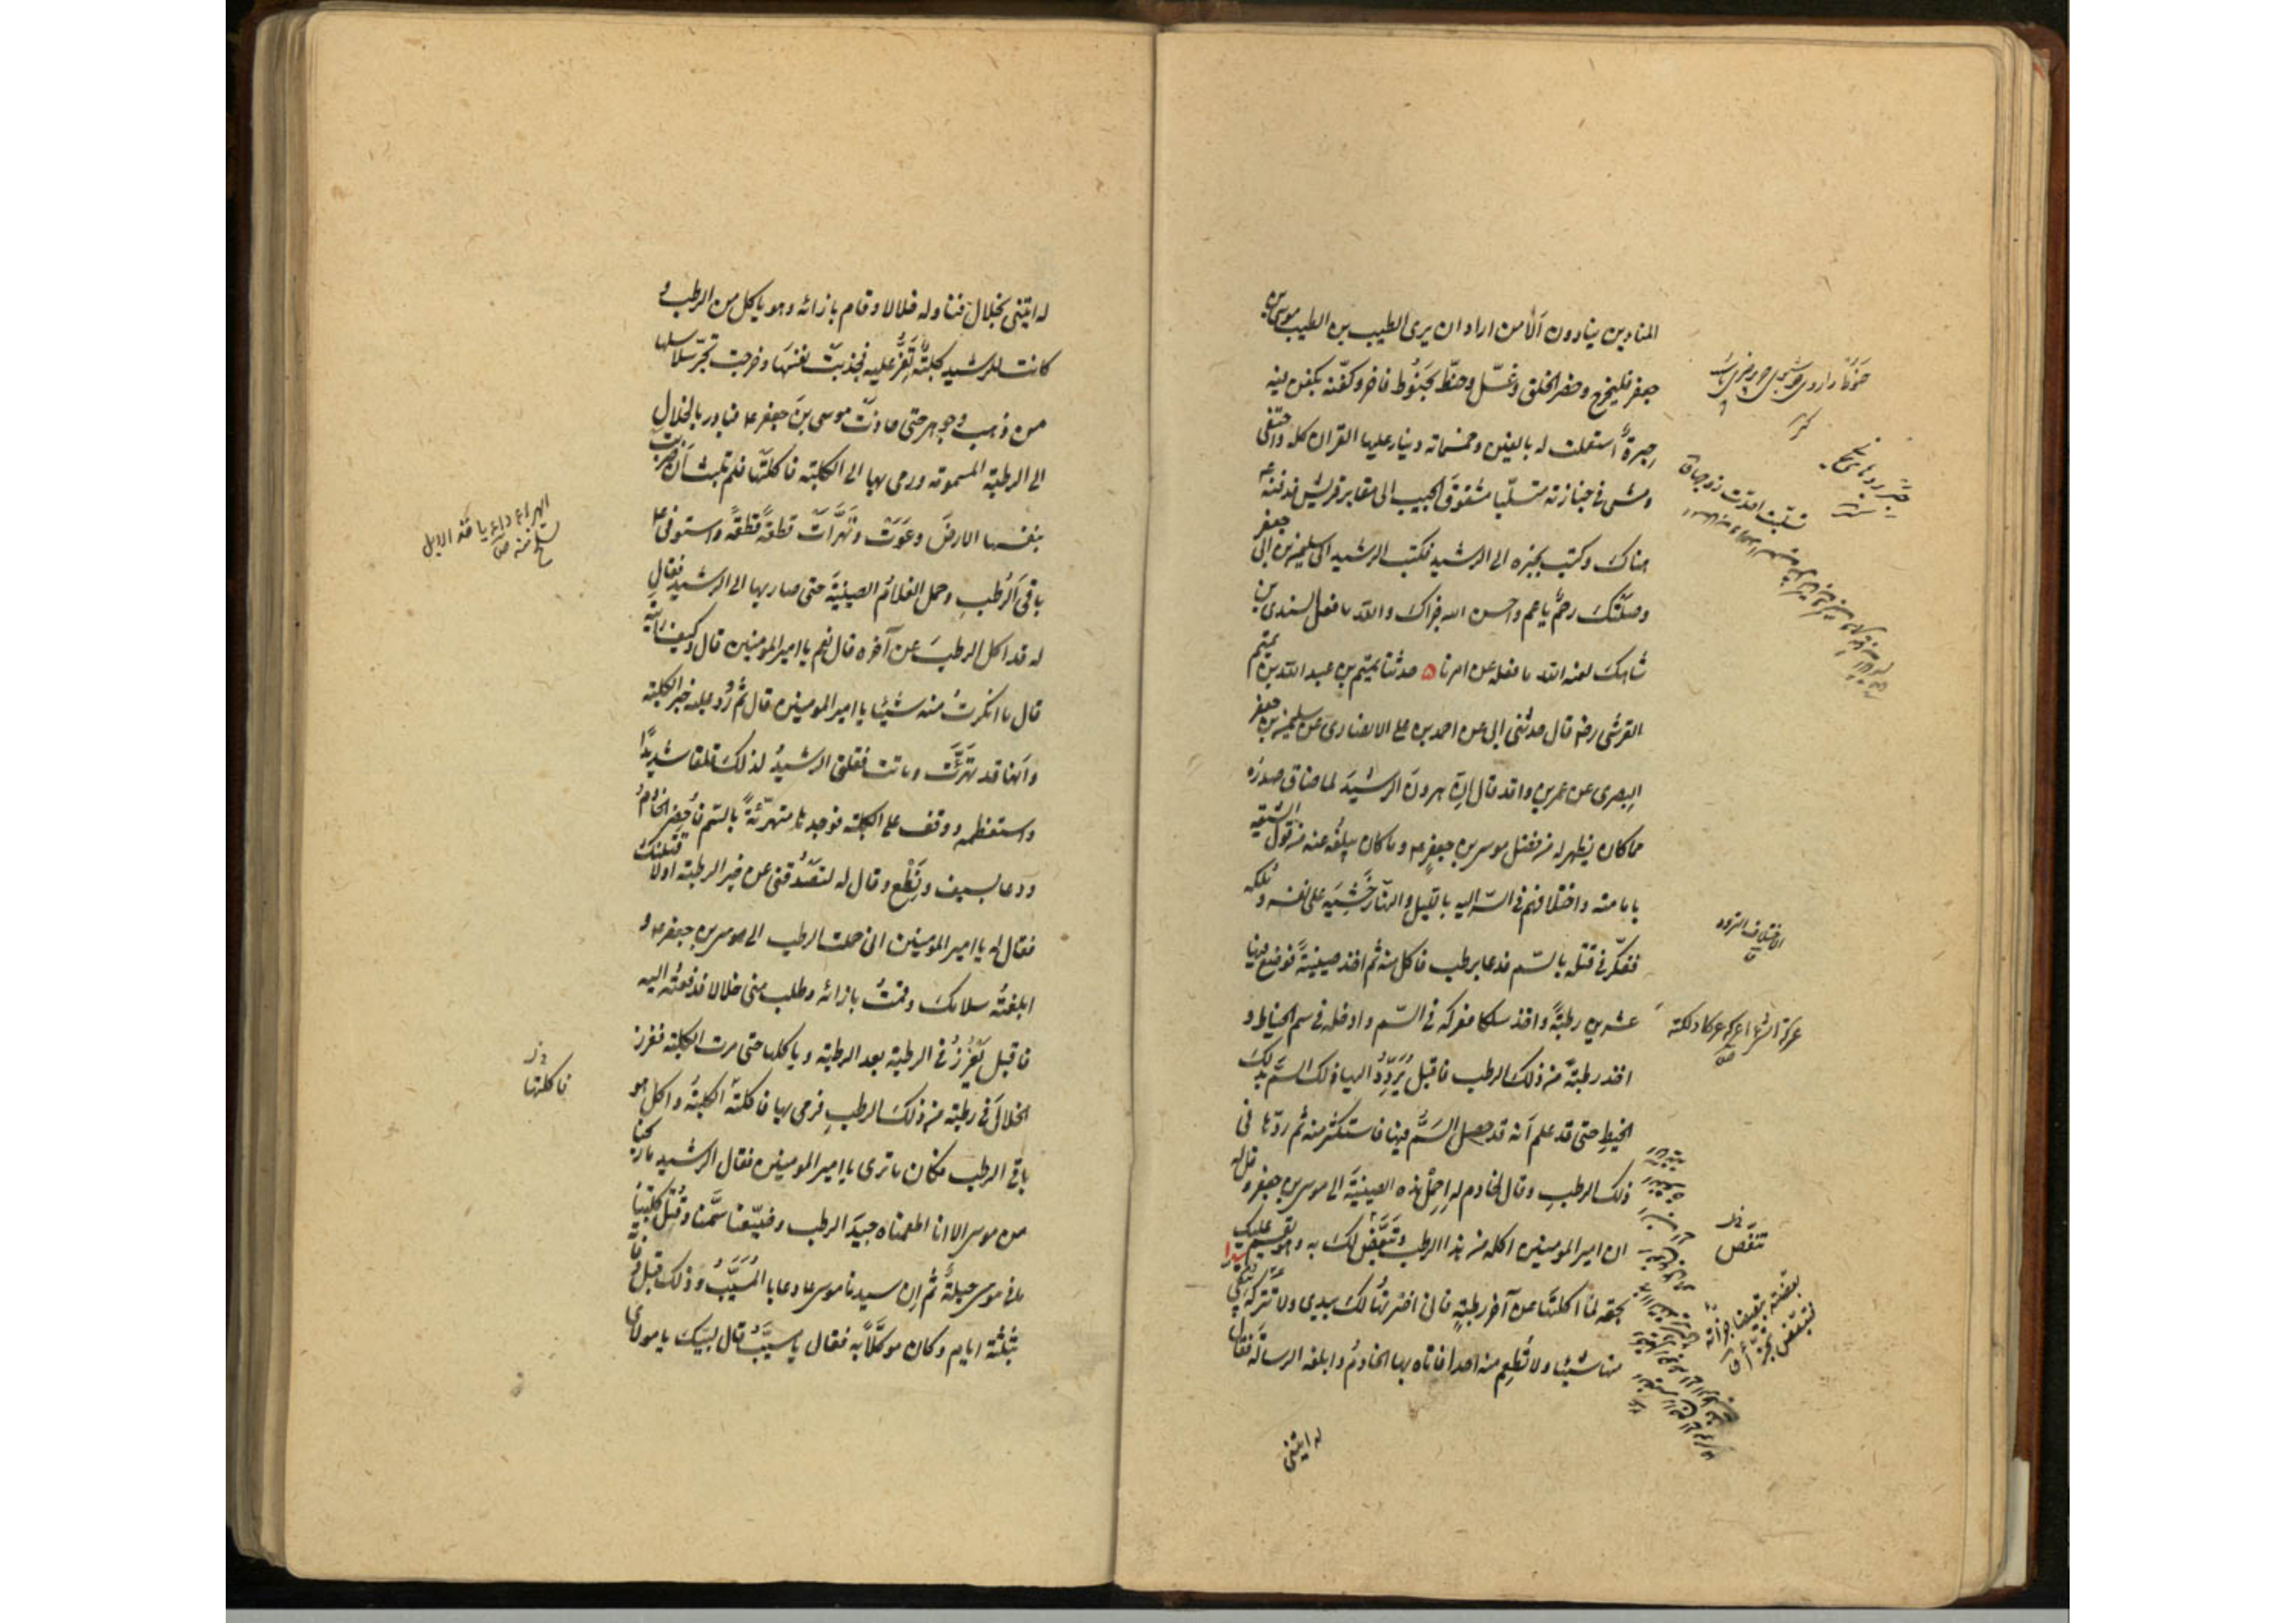 المنادين ينادون ألا من اراد ان يرى الطيب بن الطيب موسى بن
جعفر فليخرج وحضر الخلق وغسّل وحنّط بحَنُوط فاخر وكفّنه بكفن فيه
حِبرةٌ استعملت له بالفين وخمسمائة دينار عليها القران كله واحتفى
ومشى في جنازته متسلّبا مشقوقَ الجيب الى مقابر قريش فدفنه ع
هناك وكتب بخبره الى الرشيد فكتب الرشيد الى سليمن بن ابى جعفر
وصلَتْكَ رحمٌ يا عم واحسن الله جزاك والله ما فعل السندى بن
شاهك لعنه الله ما فعله عن امرنا ۵ حدثنا تميم بن عبد الله بن تميم
القرشى رضه قال حدثنى ابى عن احمد بن على الانصارى عن سليمن بن جعفر
البصرى عن عمر بن واقد قال إنّ هرونَ الرشيدَ لما ضاق صدرُه
مما كان يظهر له من فضل موسى بن جعفر ع وما كان يبلغُه عنه من قول الشيعة
بامامته واختلافهم في السّر اليه بالليل والنهار خَشِيَه على نفسه وملكه
ففكّر في قتله بالسّم فدعا برطب فاكل منه ثم اخذ صينيةً فوضع فيها
عشرين رطبةً واخذ سلكا فعركه في السّم وادخله في سم الخياط و
اخذ رطبةً من ذلك الرطب فاقبل يُرَدِّدُ اليها ذلك السَّم بذلكَ
الخيطِ حتى قد علم أنه قد حصل السَمُّ فيها فاستكثر منه ثم ردّها فى
ذلك الرطبِ وقال لخادم له اِحمِلْ هذه الصينيةَ الى موسى بن جعفر وقل له
ان امير المومنين اكل من هذا الرطب وتَنَغَّصَ لك به وهو يقسم عليك
بحقه لمّا اكلتَها عن آخر رطبةٍ فانى اخترتُها لك بيدى ولا تتركْه يُبقى
منها شيئا ولا تُطعِم منه احدا فاتاه بها الخادمُ وابلغه الرسالة فقال
له ايتنى
الاختلاف التردد
تنغّص
له ايتنى بخلال فناوله خلالا وقام بازائه وهو ياكل من الرطب و
كانت للرشيد كلبةٌ تَعِزُّ عليه فجذبَتْ نفسَها وخرجت تجر سلاسلها
من ذهب وجوهر حتى حاذتْ موسى بنَ جعفر ع فبادر بالخلالِ
الى الرطبة المسمومة ورمى بها الى الكلبة فاكلَتها فلم تلبث أن ضربتْ
بنفسها الارضَ وعَوَتْ وتهَرَّأتْ قطعةً قطعةً واستوفى ع
باقىَ الرُطبِ وحمل الغلامُ الصينيةَ حتى صار بها الى الرشيد فقال
له قد اكل الرطبَ عن آخره قال نعم يا امير المومنين قال وكيف رأيته
قال ما انكرتُ منه شيئا يا امير المومنين قال ثُم ورُد عليه خبر الكلبة
وانها قد تهَرَّئتْ وماتت فقلق الرشيدُ لذلك قلقا شديدًا
واستعظمه ووقف على الكلبة فوجدها متهرّئةً بالسّم فأحضر الخادمَ
ودعا بسيف ونَطْع وقال له لتَصْدُقنى عن خبر الرطبة اولا قتلتك
فقال له يا امير المومنين انى حملت الرطب الى موسى بن جعفر ع و
ابلغتُه سلامكَ وقمتُ بازائه وطلب منى خلالا فدفعتُه اليه
فاقبل يَغْرِزُ في الرطبة بعد الرطبة وياكلها حتى مرت الكلبة فغرز
الخلالَ في رطبة من ذلك الرطبِ فرمى بها فاكلته الكلبةُ واكل هو
باقى الرطب فكان ما ترى يا امير المومنين فقال الرشيد ما ربحنا
من موسى الا انا اطعمناه جيدَ الرطب وضيّعنا سَمَّنا وقُتِل كلبتنا
ما فى موسى حيلةٌ ثم إن سيدنا موسى ع دعا بالمُسَيَّبِ وذلك قبل وفاته
بثلثة ايام وكان موكَّلًا به فقال يا مسيَّبُ قال لبيك يا مولاى
فاكلتها